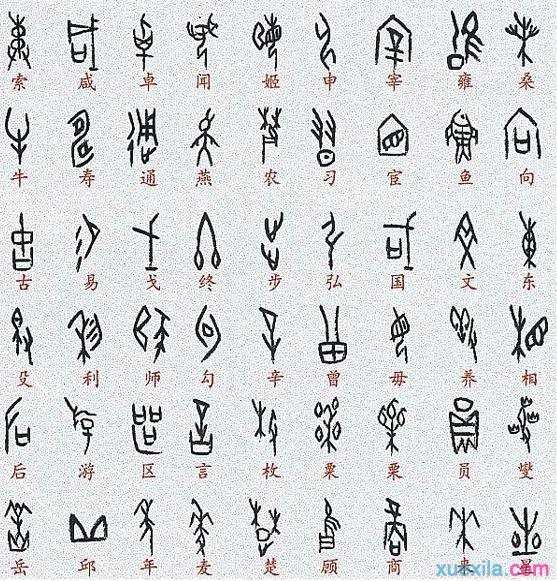 索 咸 卓 闻 姬 申 宰 雍 桑
牛 寿 通 燕 农 习 宦 鱼 向
古 易 戈 终 步 弘 国 文 东
殳 利 师 勾 辛 曾 毋 养 相
后 游 区 言 枚 粟 栗 员 燮
岳 邱 年 麦 楚 顾 商
xuexila.com